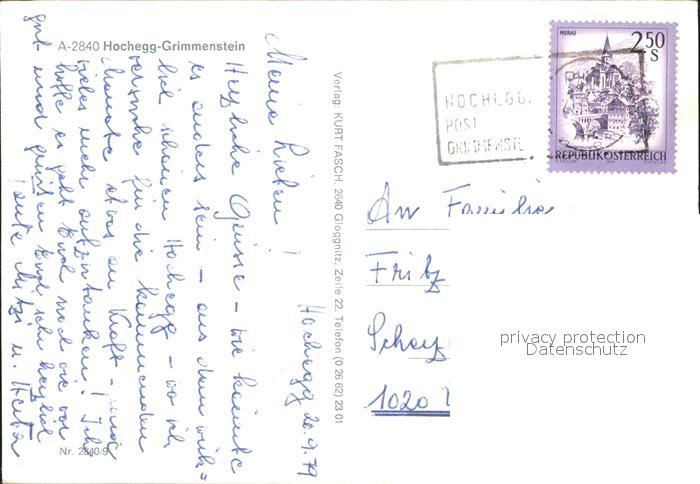 A-2840 Hochegg-Grimmenstein
Hochegg 20.9.79
Meine Lieben!
Herzliche Grüsse – wie könnte
es anders sein – aus dem wirk=
lich schönen Hochegg – wo ich
versuche für die kommenden
Monate etwas an Kraft – und
aufzutanken! Ich
hoffe es geht Euch nach wie vor
gut und grüßen Euch sehr herzlich
Mitzi u.
Nr. 2840/9
Verlag: KURT FASCH, 2640 Gloggnitz, Zeile 22, Telefon (0 26 62) 23 01
HOCHEGG,
POST
GRIMMENSTEIN
MURAU
2.50
S
REPUBLIK ÖSTERREICH
An Familie
Fritz
Schey
1020
privacy protection
Datenschutz